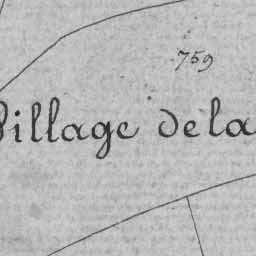 759
Village de la